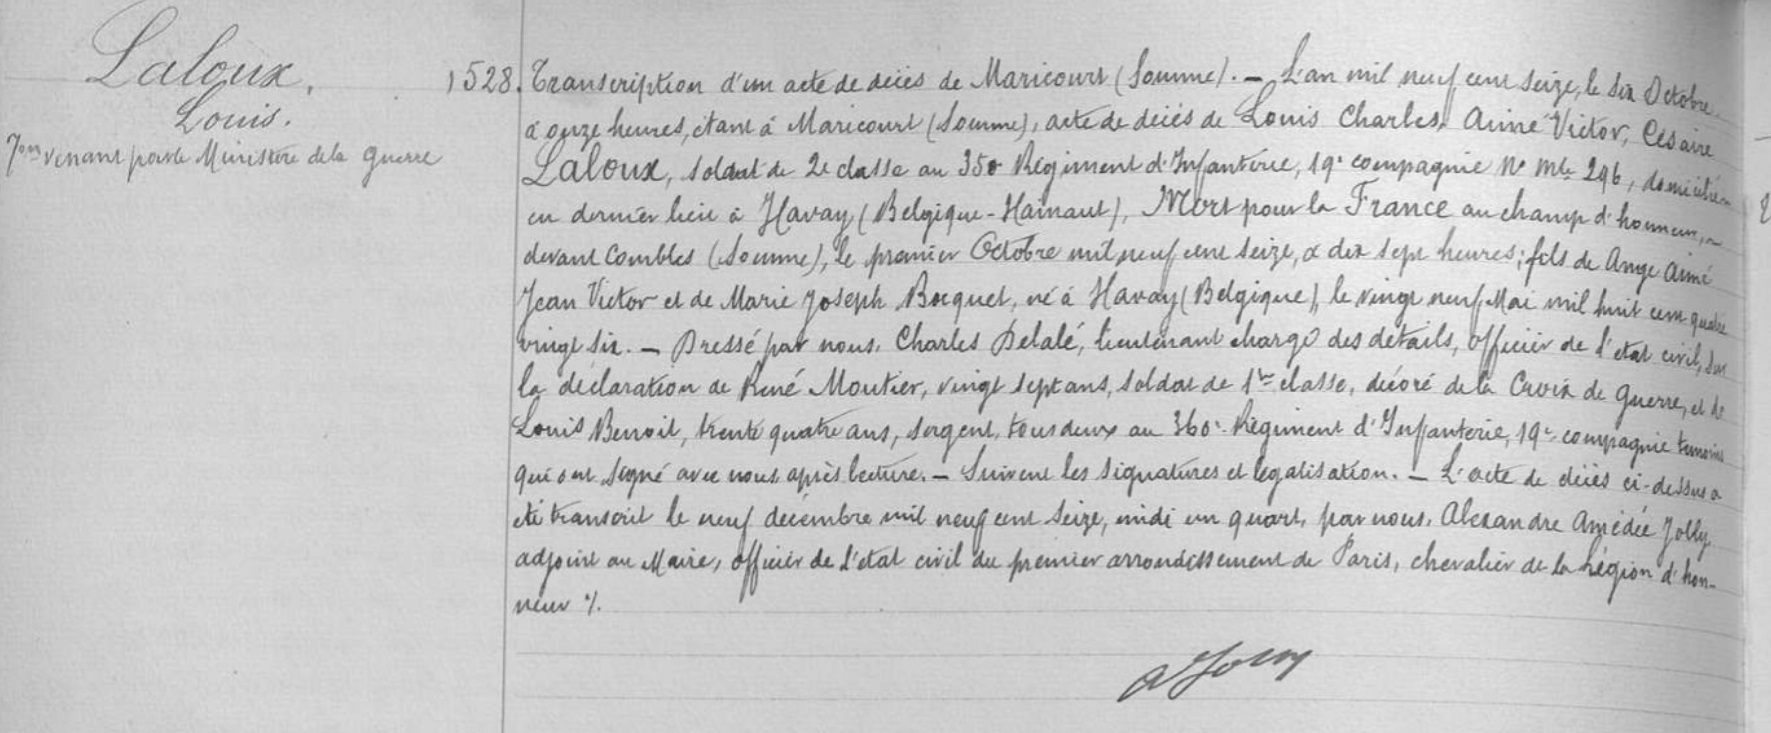 Laloux.
Louis.
venant par le Ministère de la Guerre
1528. Transcription d'un acte de décès de Maricourt (Somme). — L'an mil neuf cent seize, le six Octobre
à onze heures, étant à Maricourt (Somme), acte de décès de Louis Charles, Aimé Victor, Césaire
Laloux, soldat de 2e classe au 350 Régiment d'Infanterie, 19e compagnie No mle 296, domicilié
en dernier lieu à Havay (Belgique-Hainaut), Mort pour la France au champ d'honneur,
devant Combles (Somme), le premier Octobre mil neuf cent seize, à dix sept heures; fils de Ange Aimé
Jean Victor et de Marie Joseph Bocquet, né à Havay (Belgique), le vingt neuf Mai mil huit cent quatre
vingt six. — Dressé par nous, Charles Delalé, lieutenant chargé des détails, officier de l'état civil, sur
la déclaration de René Moutier, vingt sept ans, soldat de 1re classe, décoré de la Croix de Guerre, et de
Louis Benoit, trente quatre ans, sergent, tous deux au 360e Régiment d'Infanterie, 19e compagnie témoins
qui ont signé avec nous après lecture. — Suivent les signatures et légalisation. — L'acte de décès ci-dessus a
été transcrit le neuf décembre mil neuf cent seize, midi un quart, par nous, Alexandre Amédée Jolly
adjoint au Maire, officier de l'état civil du premier arrondissement de Paris, chevalier de la Légion d'hon-
neur %.
A Jolly